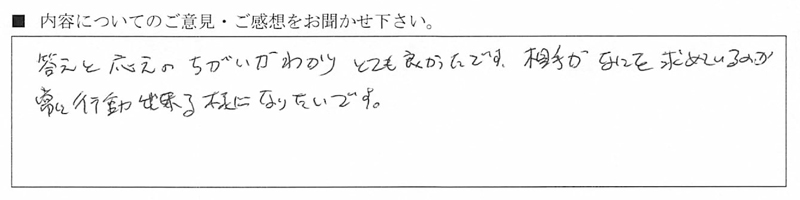 ■ 内容についてのご意見・ご感想をお聞かせ下さい。
答えと応えのちがいがわかりとても良かったです。相手がなにを求めているのか
常に行動出来る様になりたいです。